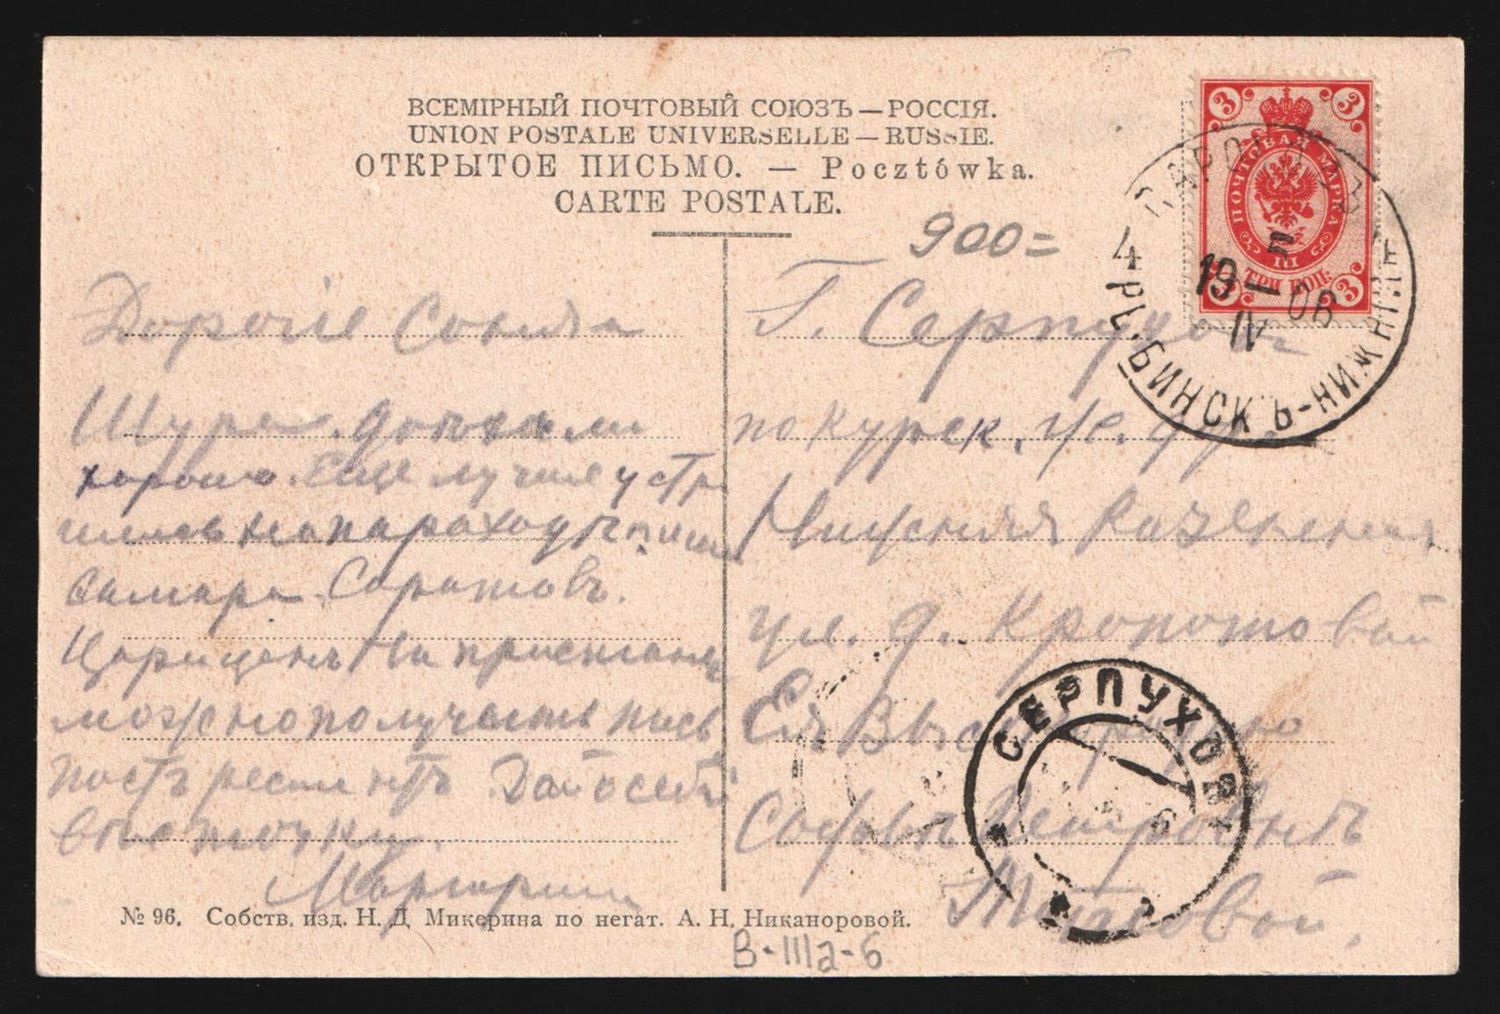 ВСЕМІРНЫЙ ПОЧТОВЫЙ СОЮЗЪ — РОССІЯ.
UNION POSTALE UNIVERSELLE — RUSSIE.
ОТКРЫТОЕ ПИСЬМО. — Pocztówka.
CARTE POSTALE.
900=
3 3
ПОЧТОВАЯ МАРКА
III
ТРИ КОП.
3 3
4
19 IV 06
РЫБИНСКЪ-НИЖНІЙ
Дорогіе Соня
Шура доехали
хорошо. Еще лучше устр
на пароходъ пиши
Самара Саратовъ.
Царицынъ на пристань
можно получать пись
вы
Маргарит
Г. Серпухов
по Курск. ж. д.
Казенная
ул. д. Кропотовой
Ея Высокородію
Софьѣ Петровнѣ
Титовой.
СЕРПУХОВЪ
№ 96. Собств. изд. Н. Д. Микерина по негат. А. Н. Никаноровой.
В-IIIа-6